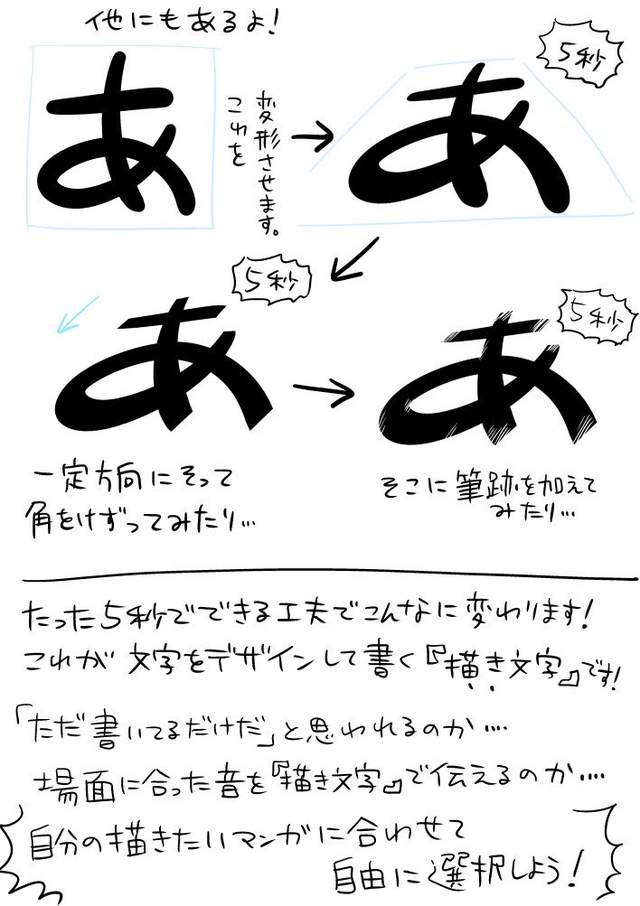 他にもあるよ!
あ
これを
変形させます。
あ
5秒
5秒
あ
5秒
あ
一定方向にそって
角をけずってみたり…
そこに筆跡を加えて
みたり…
たった5秒でできる工夫でこんなに変わります!
これが文字をデザインして書く『描き文字』です!
「ただ書いてるだけだ」と思われるのか‥‥
場面に合った音を『描き文字』で伝えるのか‥‥
自分の描きたいマンガに合わせて
自由に選択しよう!